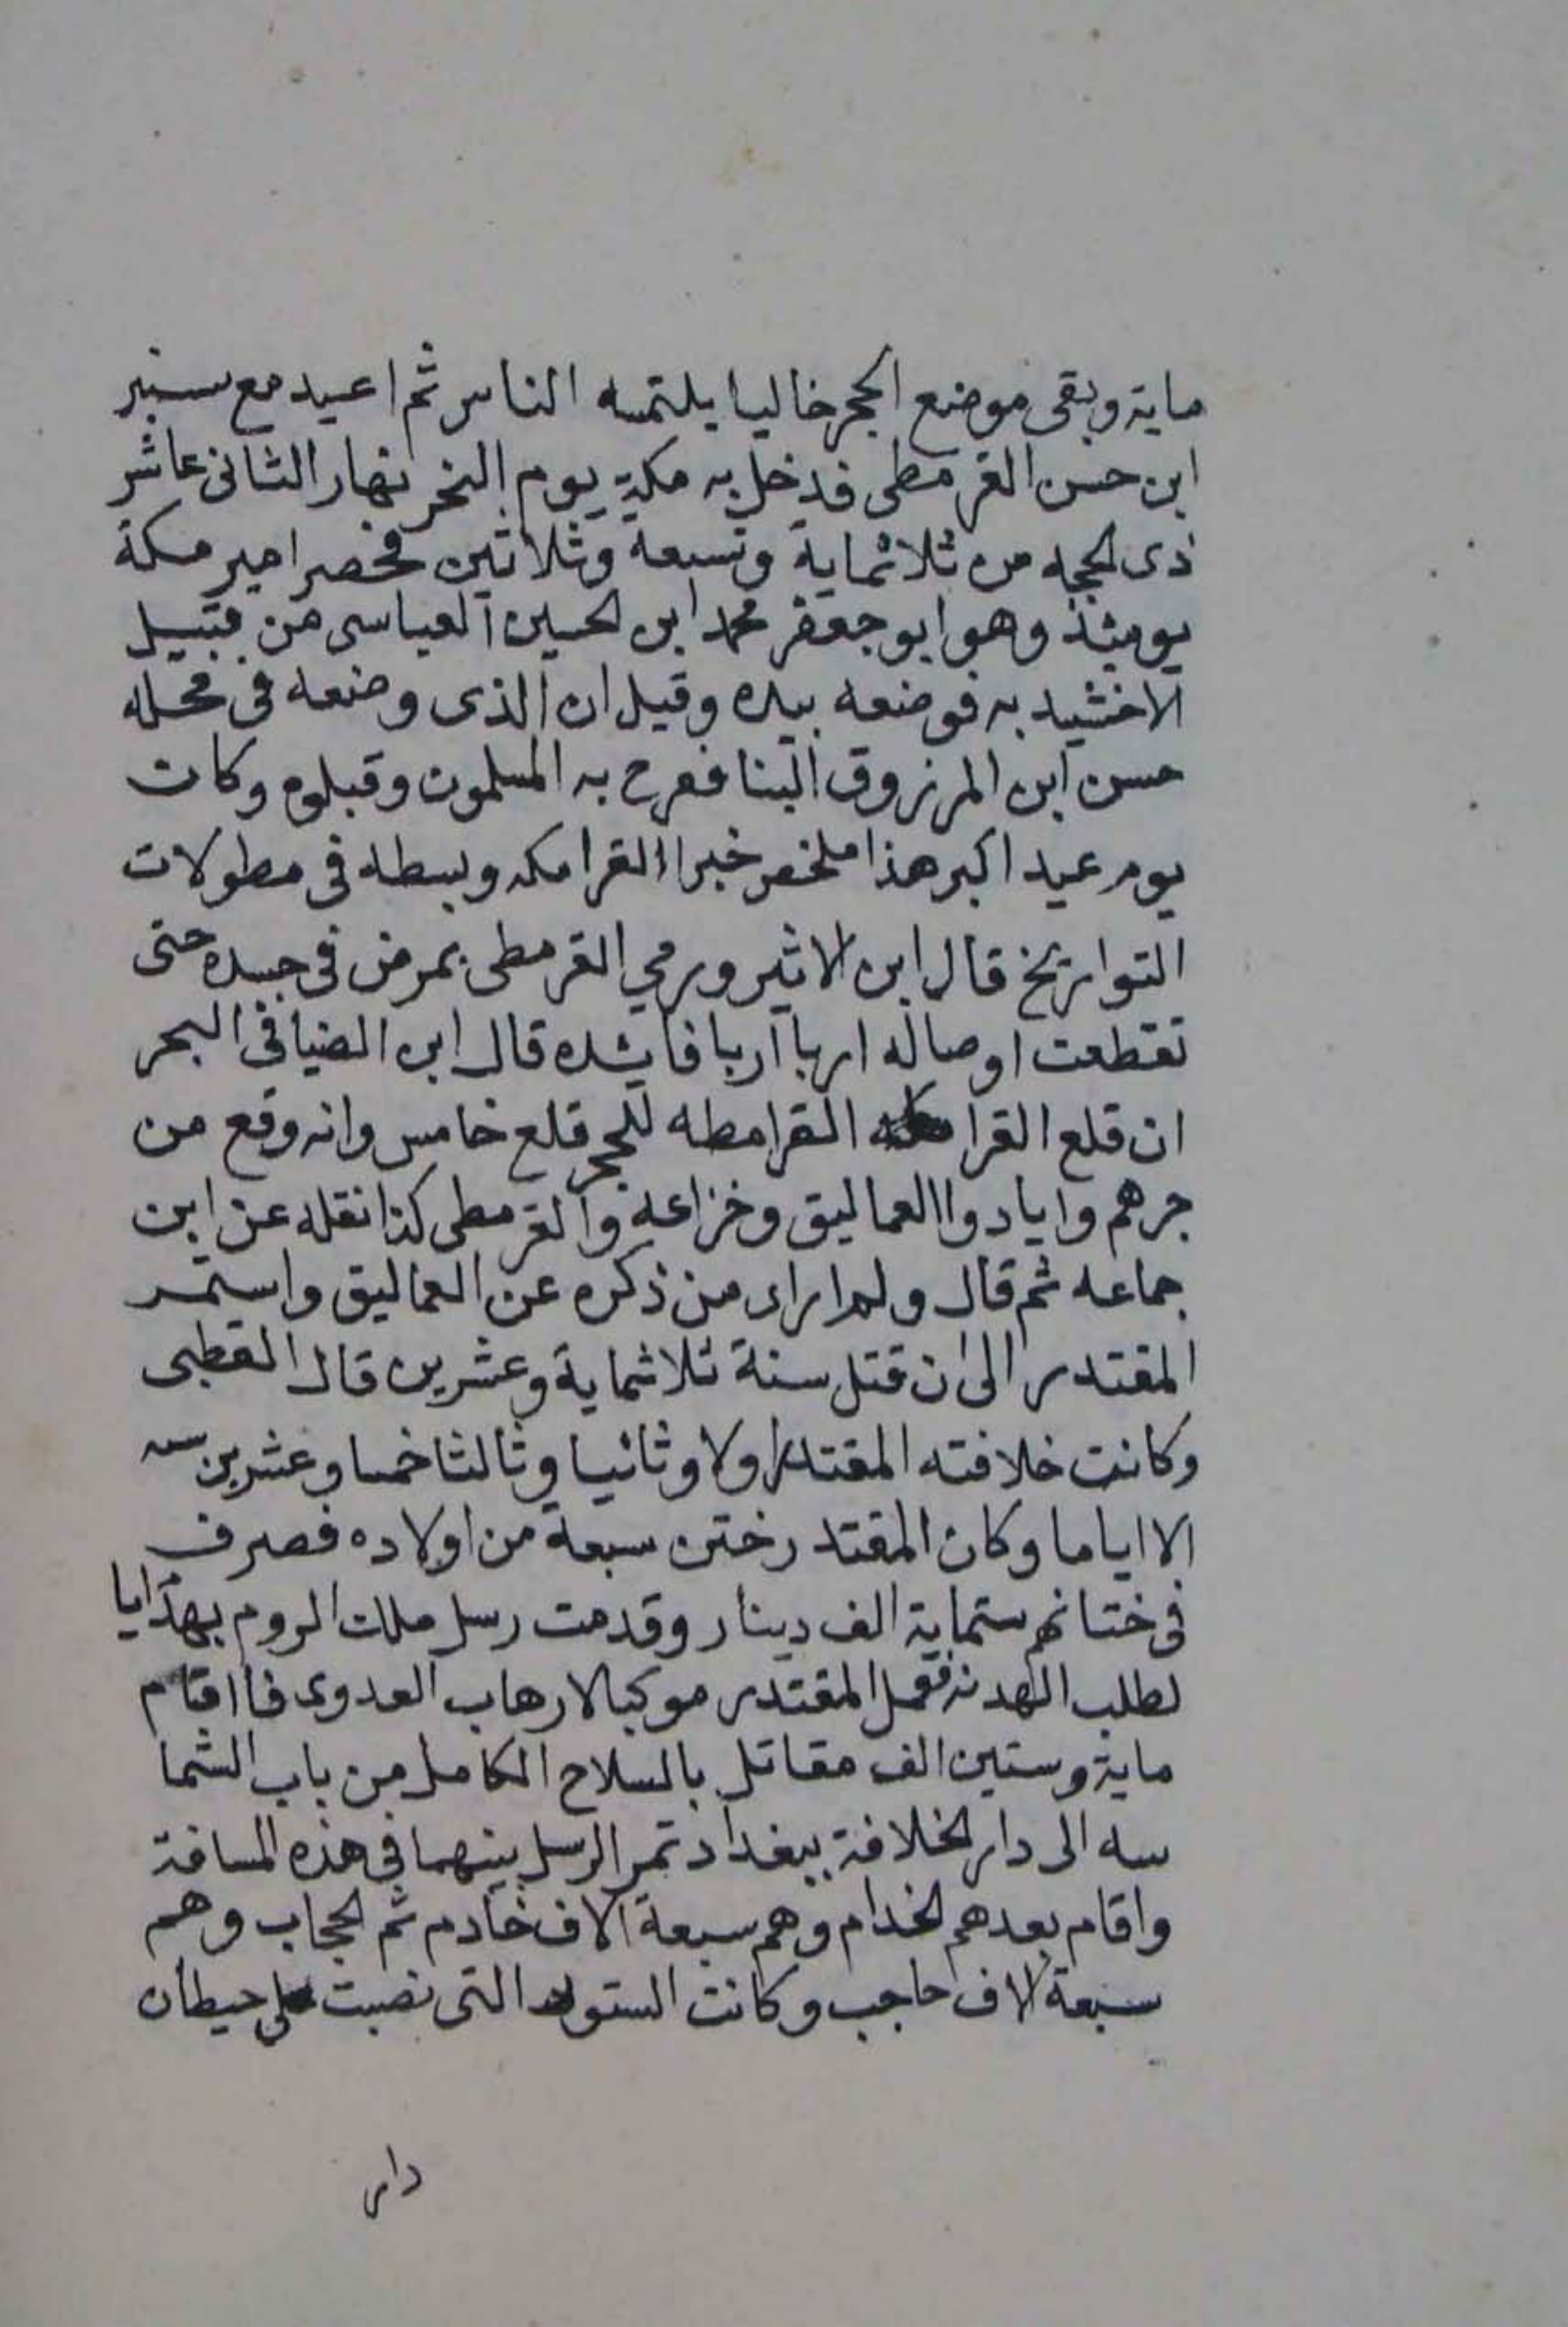 ماية وبقى موضع الحجر خاليا يلتمسه الناس ثم اعيد مع سنبر
ابن حسن القرمطى فدخل به مكة يوم النحر نهار الثانى عاشر
ذى الحجه من ثلاثماية وتسعة وثلاثين فحضر امير مكة
يوميئذ وهو ابو جعفر محمد ابن الحسين العباسى من قبيل
الاخشيد به فوضعه بيده وقيل ان الذى وضعه فى محله
حسن ابن المرزوق البنا ففرح به المسلمون وقبلوه وكان
يوم عيد اكبر هذا ملخص خبر القرامطه وبسطه فى مطولات
التواريخ قال ابن الاثير ورمي القرمطى بمرض فى جسده حتى
تقطعت اوصاله اربا اربا قال ابن الضيا فى البحر
ان قلع القرامطه للحجر قلع خامس وانه وقع من
جرهم واياد والعماليق وخزاعه والقرمطى كذا نقله عن ابن
جماعه ثم قال ولم اراى من ذكره عن العماليق واستمر
المقتدر الى ان قتل سنة ثلاثماية وعشرين قال القطبى
وكانت خلافته المقتدر اولا وثانيا وثالثا خمسا وعشرين سنه
الا اياما وكان المقتدر ختن سبعة من اولاده فصرف
فى ختانهم ستماية الف دينار وقدمت رسل ملك الروم بهدايا
لطلب الهدنه فعمل المقتدر موكبا لارهاب العدوى فاقام
ماية وستين الف مقاتل بالسلاح الكامل من باب الشما
سه الى دار الخلافة ببغداد تمر الرسل بينهما فى هذه المسافة
واقام بعدهم الخدام وهم سبعة الاف خادم ثم الحجاب وهم
سبعة الاف حاجب وكانت الستور التى نصبت على حيطان
دار